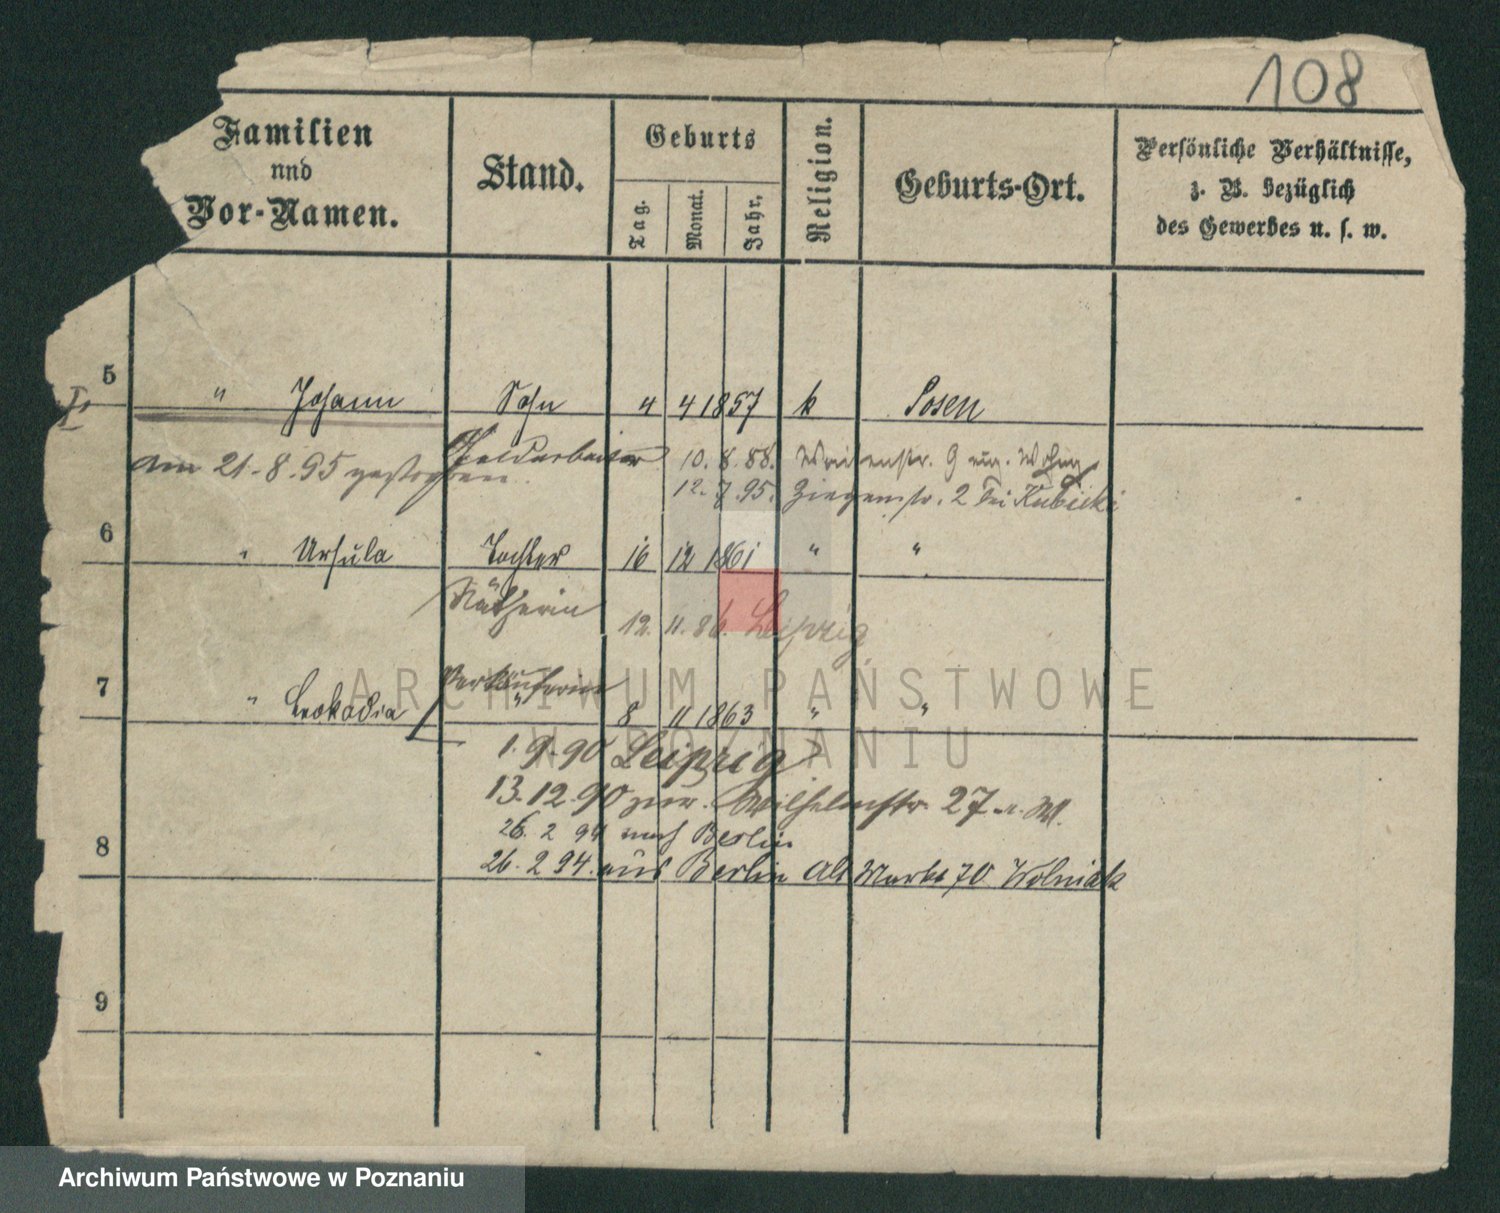 108
Familien
und
Vor-Namen.
Stand.
Geburts
Tag.
Monat.
Jahr.
Religion.
Geburts-Ort.
Persönliche Verhältnisse,
z. B. bezüglich
des Gewerbes u. s. w.
5 " Johann Sohn 4 4 1857 k Posen
Feldarbeiter 10. 8. 88.
am 21.8.95 gestorben.
12. 7. 95. Ziegenstr. 2 bei Kubicki
6 " Ursula Tochter 16 12 1861 " "
Nätherin 12. 11. 86. Leipzig
Verkäuferin
7 " Leokadia " 8 11 1863 " "
1. 9. 90 Leipzig
13. 12. 90 zur. Wilhelmstr. 27
26. 2 94 nach Berlin
8 26. 2 94. aus Berlin Alt Markt 70 Wolniak
9
ARCHIWUM PAŃSTWOWE
W POZNANIU
Archiwum Państwowe w Poznaniu